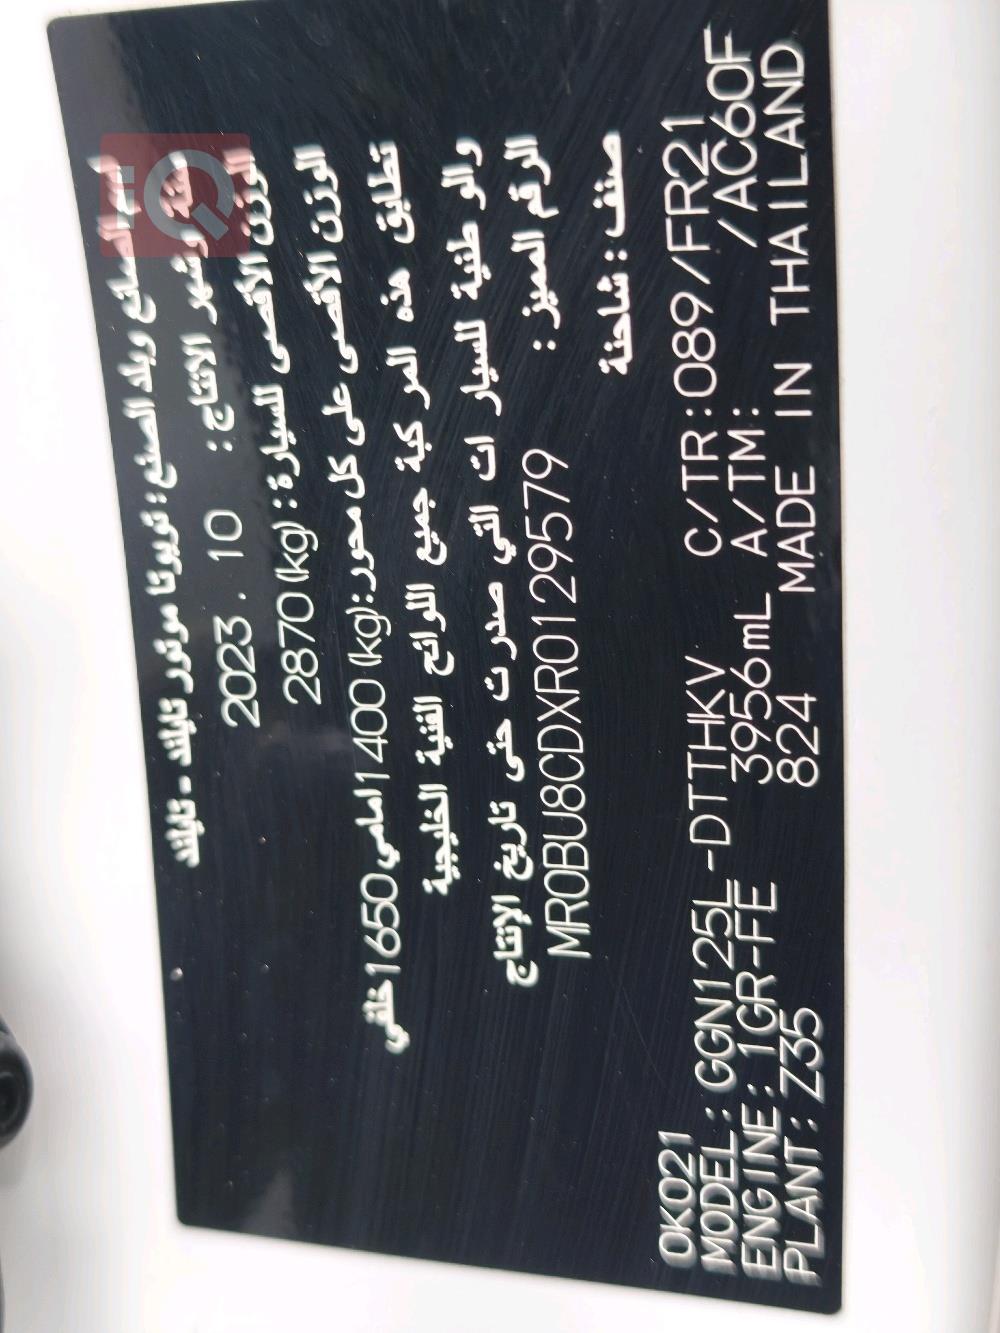 اسم الصانع وبلد الصنع : تويوتا موتور تايلند - تايلند
سنة وشهر الانتاج : 2023 . 10
الوزن الأقصى للسيارة : 2870 (kg)
الوزن الأقصى على كل محور: (kg) 1400 امامي 1650 خلفي
تطابق هذه المركبة جميع اللوائح الفنية الخليجية
والو طنية للسيار ات التي صدر ت حتى تاريخ الإنتاج
الرقم المميز : MR0BU8CDXR0129579
صنف : شاحنة
OK021
MODEL : GGN125L -DTTHKV C/TR : 089/FR21
ENGINE : 1GR-FE 3956mL A/TM : /AC60F
PLANT : Z35 824 MADE IN THAILAND
iQ